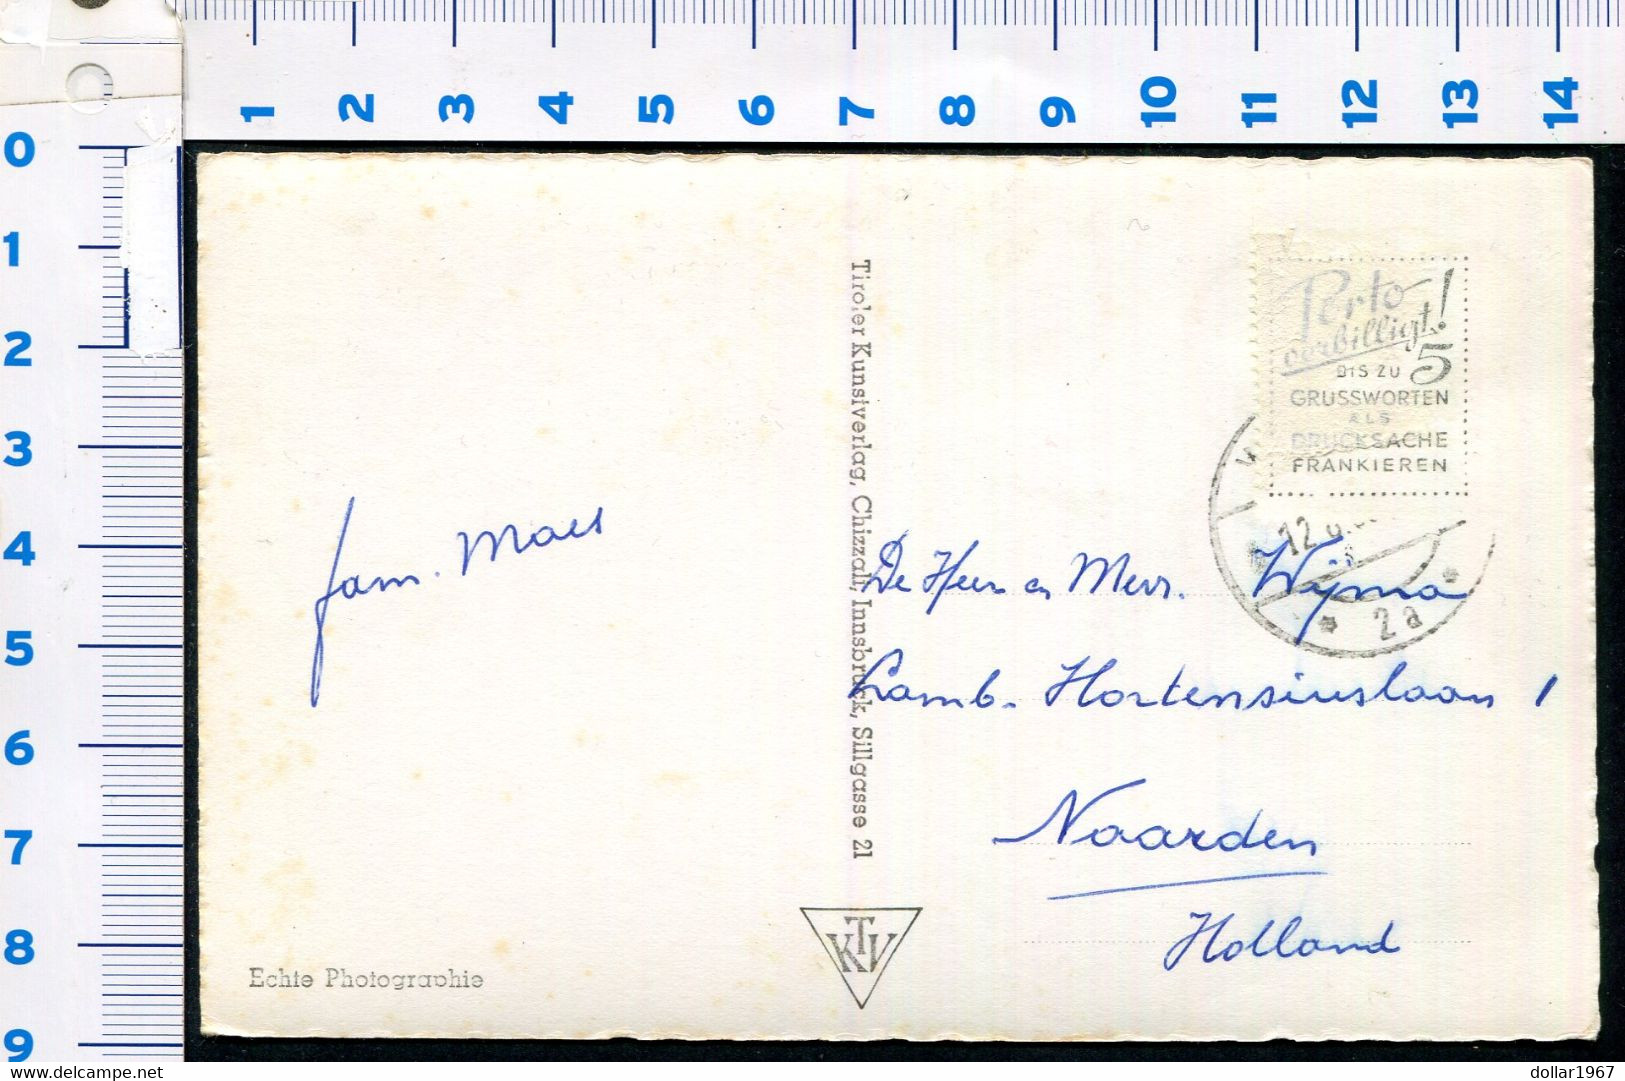 1 2 3 4 5 6 7 8 9 10 11 12 13 14
0
1
2
3
4
5
6
7
8
9
Porto
verbilligt!
BIS ZU 5
GRUSSWORTEN
ALS
DRUCKSACHE
FRANKIEREN
12
2a
Tiroler Kunstverlag, Chizzali, Innsbruck, Sillgasse 21
fam. Maes
De Heer en Mevr. Wijma
Lamb. Hortensiuslaan 1
Naarden
Holland
KTV
Echte Photographie
www.delcampe.net
dollar1967